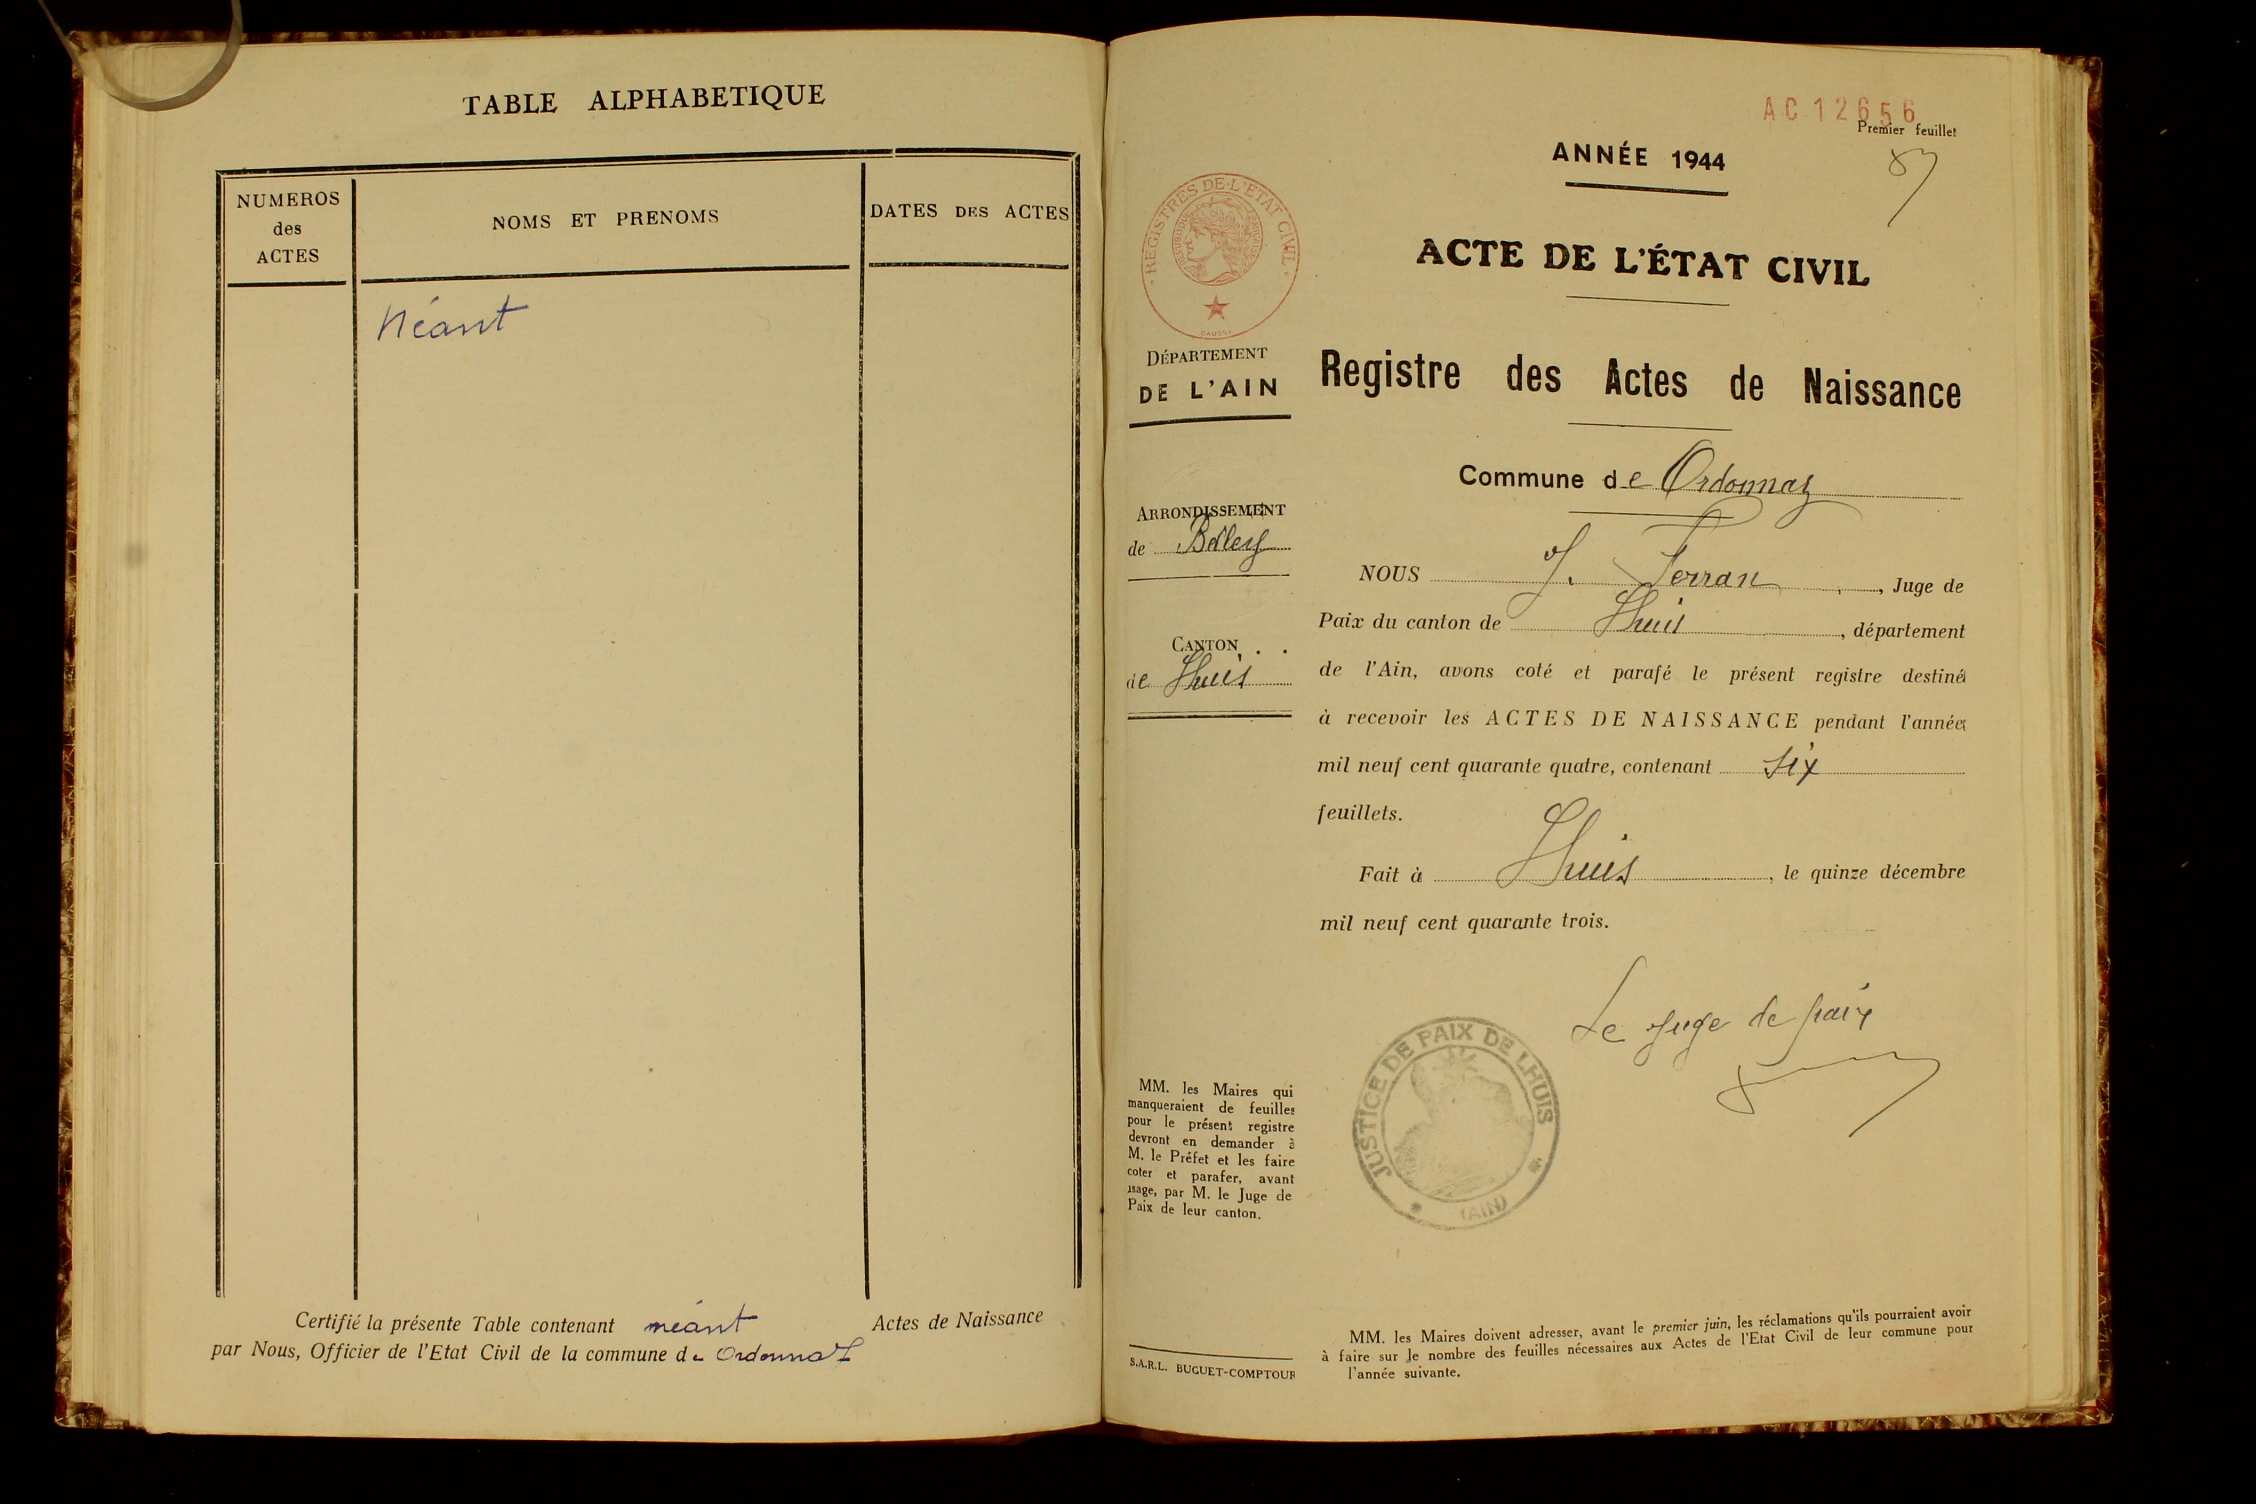 TABLE ALPHABETIQUE
NUMEROS
des
ACTES
NOMS ET PRENOMS
DATES DES ACTES
Néant
Certifié la présente Table contenant néant Actes de Naissance
par Nous, Officier de l'Etat Civil de la commune de Ordonnaz
AC 12656
Premier feuillet
ANNÉE 1944
ACTE DE L'ÉTAT CIVIL
Registre des Actes de Naissance
Commune de Ordonnaz
REGISTRES DE L'ETAT CIVIL
DÉPARTEMENT
DE L'AIN
ARRONDISSEMENT
de Belley
CANTON
de Lhuis
MM. les Maires qui
manqueraient de feuilles
pour le présent registre
devront en demander à
M. le Préfet et les faire
coter et parafer, avant
usage, par M. le Juge de
Paix de leur canton.
S.A.R.L. BUGUET-COMPTOUR
NOUS J. Ferran, Juge de
Paix du canton de Lhuis, département
de l'Ain, avons coté et parafé le présent registre destiné
à recevoir les ACTES DE NAISSANCE pendant l'année
mil neuf cent quarante quatre, contenant six
feuillets.
Fait à Lhuis, le quinze décembre
mil neuf cent quarante trois.
Le Juge de paix
JUSTICE DE PAIX DE LHUIS
(AIN)
MM. les Maires doivent adresser, avant le premier juin, les réclamations qu'ils pourraient avoir
à faire sur le nombre des feuilles nécessaires aux Actes de l'Etat Civil de leur commune pour
l'année suivante.